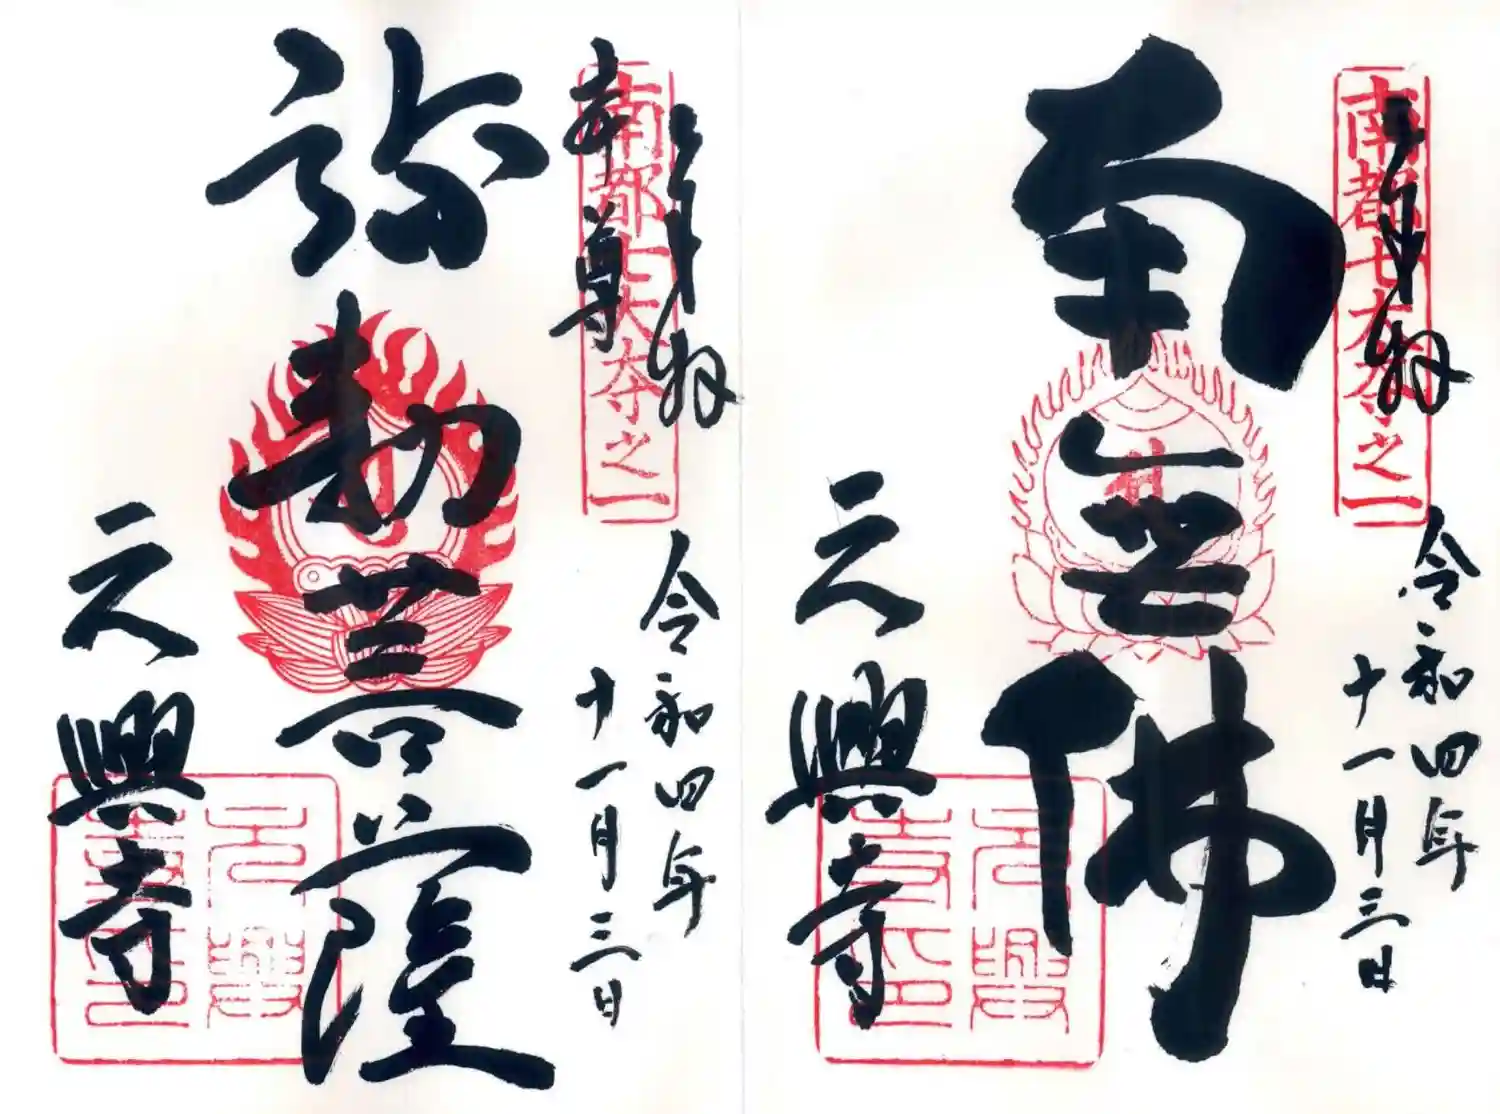 奉拝
南都七大寺之一
令和四年
十一月三日
南無佛
元興寺
元興寺印
奉拝
南都七大寺之一
本尊
令和四年
十一月三日
弥勒菩薩
元興寺
元興寺印